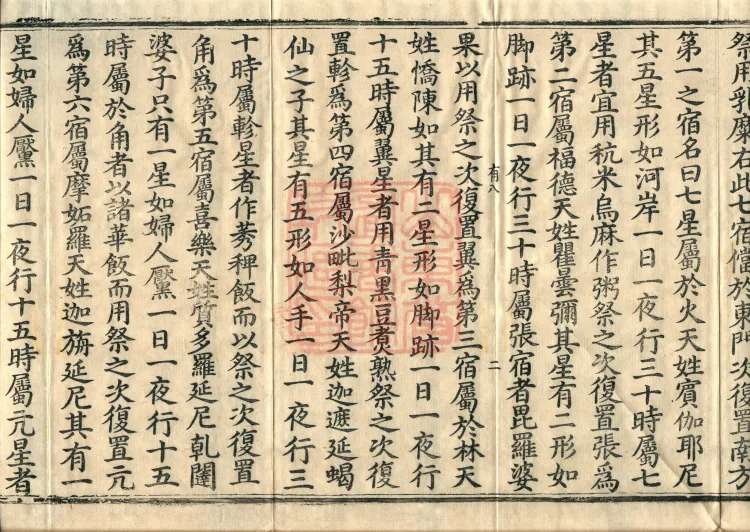 祭用乳糜右此七宿當於東門次復置南方
第一之宿名曰七星屬於火天姓賓伽耶尼
其五星形如河岸一日一夜行三十時屬七
星者宜用秔米烏麻作粥祭之次復置張爲
第二宿屬福德天姓瞿曇彌其星有二形如
脚跡一日一夜行三十時屬張宿者毘羅婆
有八 二
果以用祭之次復置翼爲第三宿屬於林天
姓憍陳如其有二星形如脚跡一日一夜行
十五時屬翼星者用青黑豆煑熟祭之次復
置軫爲第四宿屬沙毗梨帝天姓迦遮延蝎
仙之子其星有五形如人手一日一夜行三
十時屬軫星者作莠稗飯而以祭之次復置
角爲第五宿屬喜樂天姓質多羅延尼乹闥
婆子只有一星如婦人黶一日一夜行十五
時屬於角者以諸華飯而用祭之次復置亢
爲第六宿屬摩妬羅天姓迦旃延尼其有一
星如婦人黶一日一夜行十五時屬亢星者